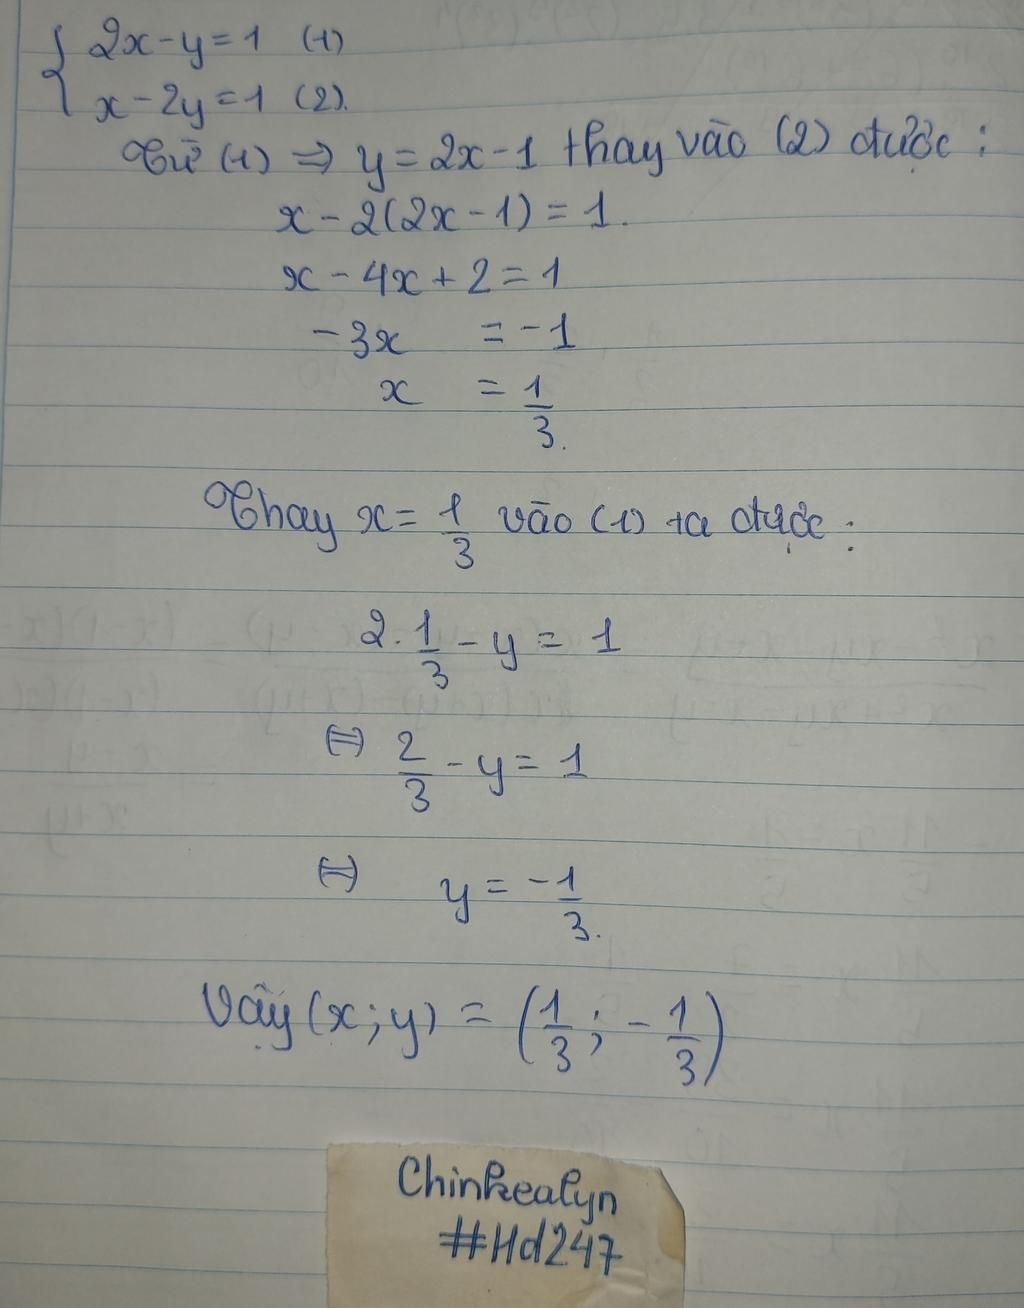 { 2x - y = 1 (1)
x - 2y = 1 (2).
Từ (1) => y = 2x - 1 thay vào (2) được :
x - 2(2x - 1) = 1.
x - 4x + 2 = 1
-3x = -1
x = 1/3.
Thay x = 1/3 vào (1) ta được :
2. 1/3 - y = 1
(=) 2/3 - y = 1
(=) y = -1/3.
Vậy (x; y) = (1/3 ; - 1/3)
Chinkealyn
#Hd247